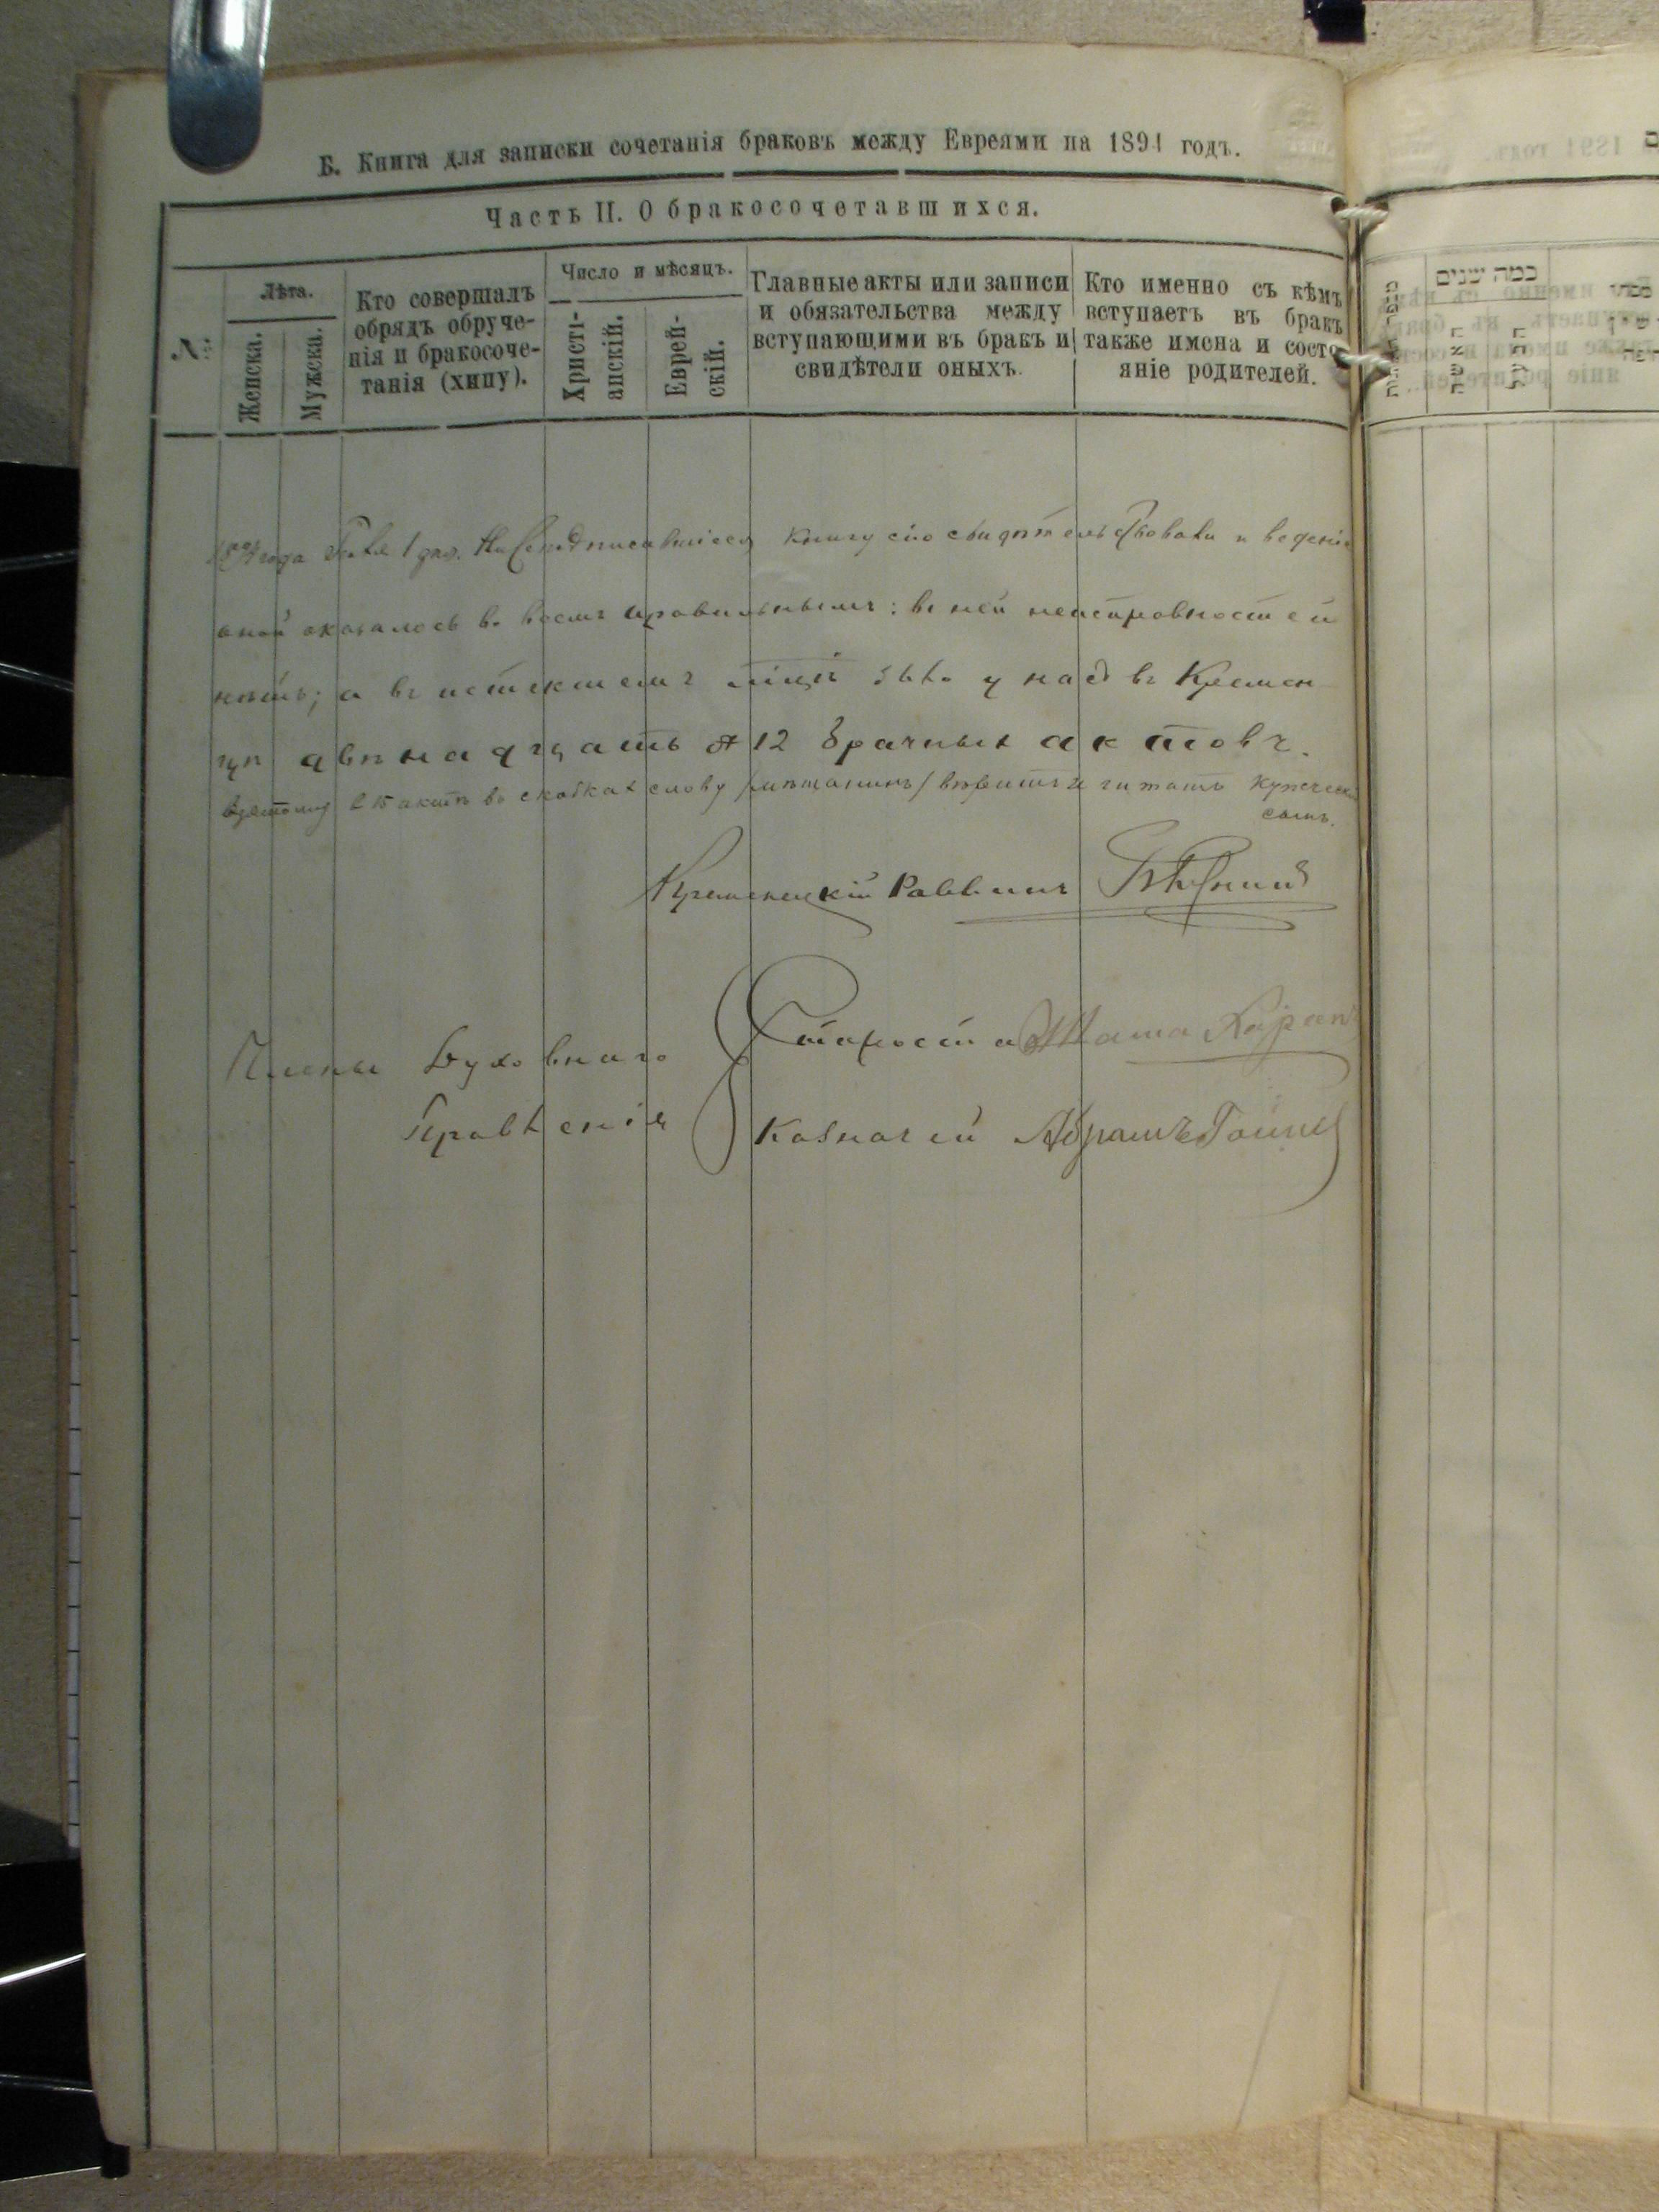 Б. Книга для записки сочетанія браковъ между Евреями на 1891 годъ.
Часть II. О бракосочетавшихся.
№
Лѣта.
Женска.
Мужска.
Кто совершалъ
обрядъ обруче-
нія и бракосоче-
танія (хипу).
Число и мѣсяцъ.
Христі-
анскій.
Еврей-
скій.
Главные акты или записи
и обязательства между
вступающими въ бракъ и
свидѣтели оныхъ.
Кто именно съ кѣмъ
вступаетъ въ бракъ
также имена и состо
яніе родителей.
года 1 дня. книгу сію свидѣтельствовали и веденіе
оной оказалось во всемъ правильнымъ: въ ней неисправностей
нѣтъ; а въ истекшемъ было у насъ въ Кремен
цѣ двѣнадцать 12 брачныхъ актовъ.
въ 15 актѣ въ скобкахъ слову /мѣщанинъ/ вѣрить и читать купеческій
сынъ.
Кременецкій Раввинъ
Члены Духовнаго
Правленія
Староста
Казначей Абрамъ
כמה שנים